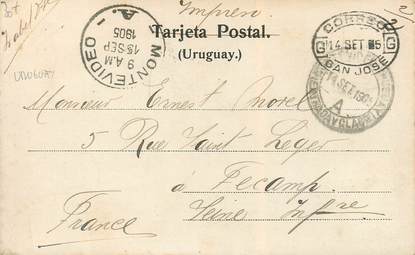 Impren
Tarjeta Postal.
(Uruguay.)
MONTEVIDEO
9 A.M
15 SEP
1905
A.
CORREO
G 14 SET 05 G
SAN JOSÉ
14 SET 1905
A
URUGUAY
Monsieur Ernest Morel
5 Rue Saint Leger
à Fecamp.
Seine Infre
France